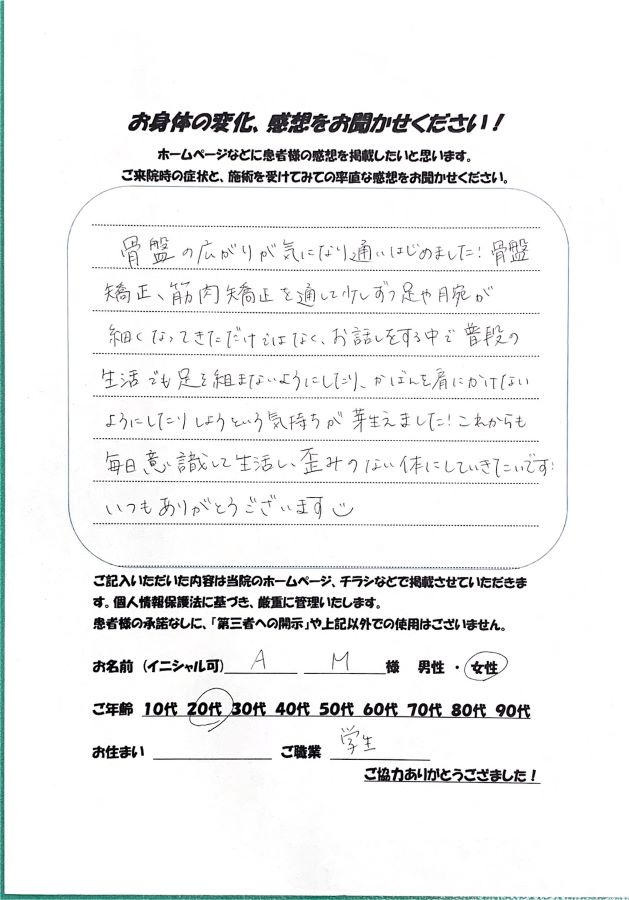 お身体の変化、感想をお聞かせください！
ホームページなどに患者様の感想を掲載したいと思います。
ご来院時の症状と、施術を受けてみての率直な感想をお聞かせください。
骨盤の広がりが気になり通いはじめました！骨盤
矯正、筋肉矯正を通して少しずつ足や腕が
細くなってきただけではなく、お話しをする中で普段の
生活でも足を組まないようにしたり、かばんを肩にかけない
ようにしたりしようという気持ちが芽生えました！これからも
毎日意識して生活し、歪みのない体にしていきたいです！
いつもありがとうございます
ご記入いただいた内容は当院のホームページ、チラシなどで掲載させていただきま
す。個人情報保護法に基づき、厳重に管理いたします。
患者様の承諾なしに、「第三者への開示」や上記以外での使用はございません。
お名前（イニシャル可） A M 様 男性・女性
ご年齢 10代 20代 30代 40代 50代 60代 70代 80代 90代
お住まい ご職業 学生
ご協力ありがとうござました！